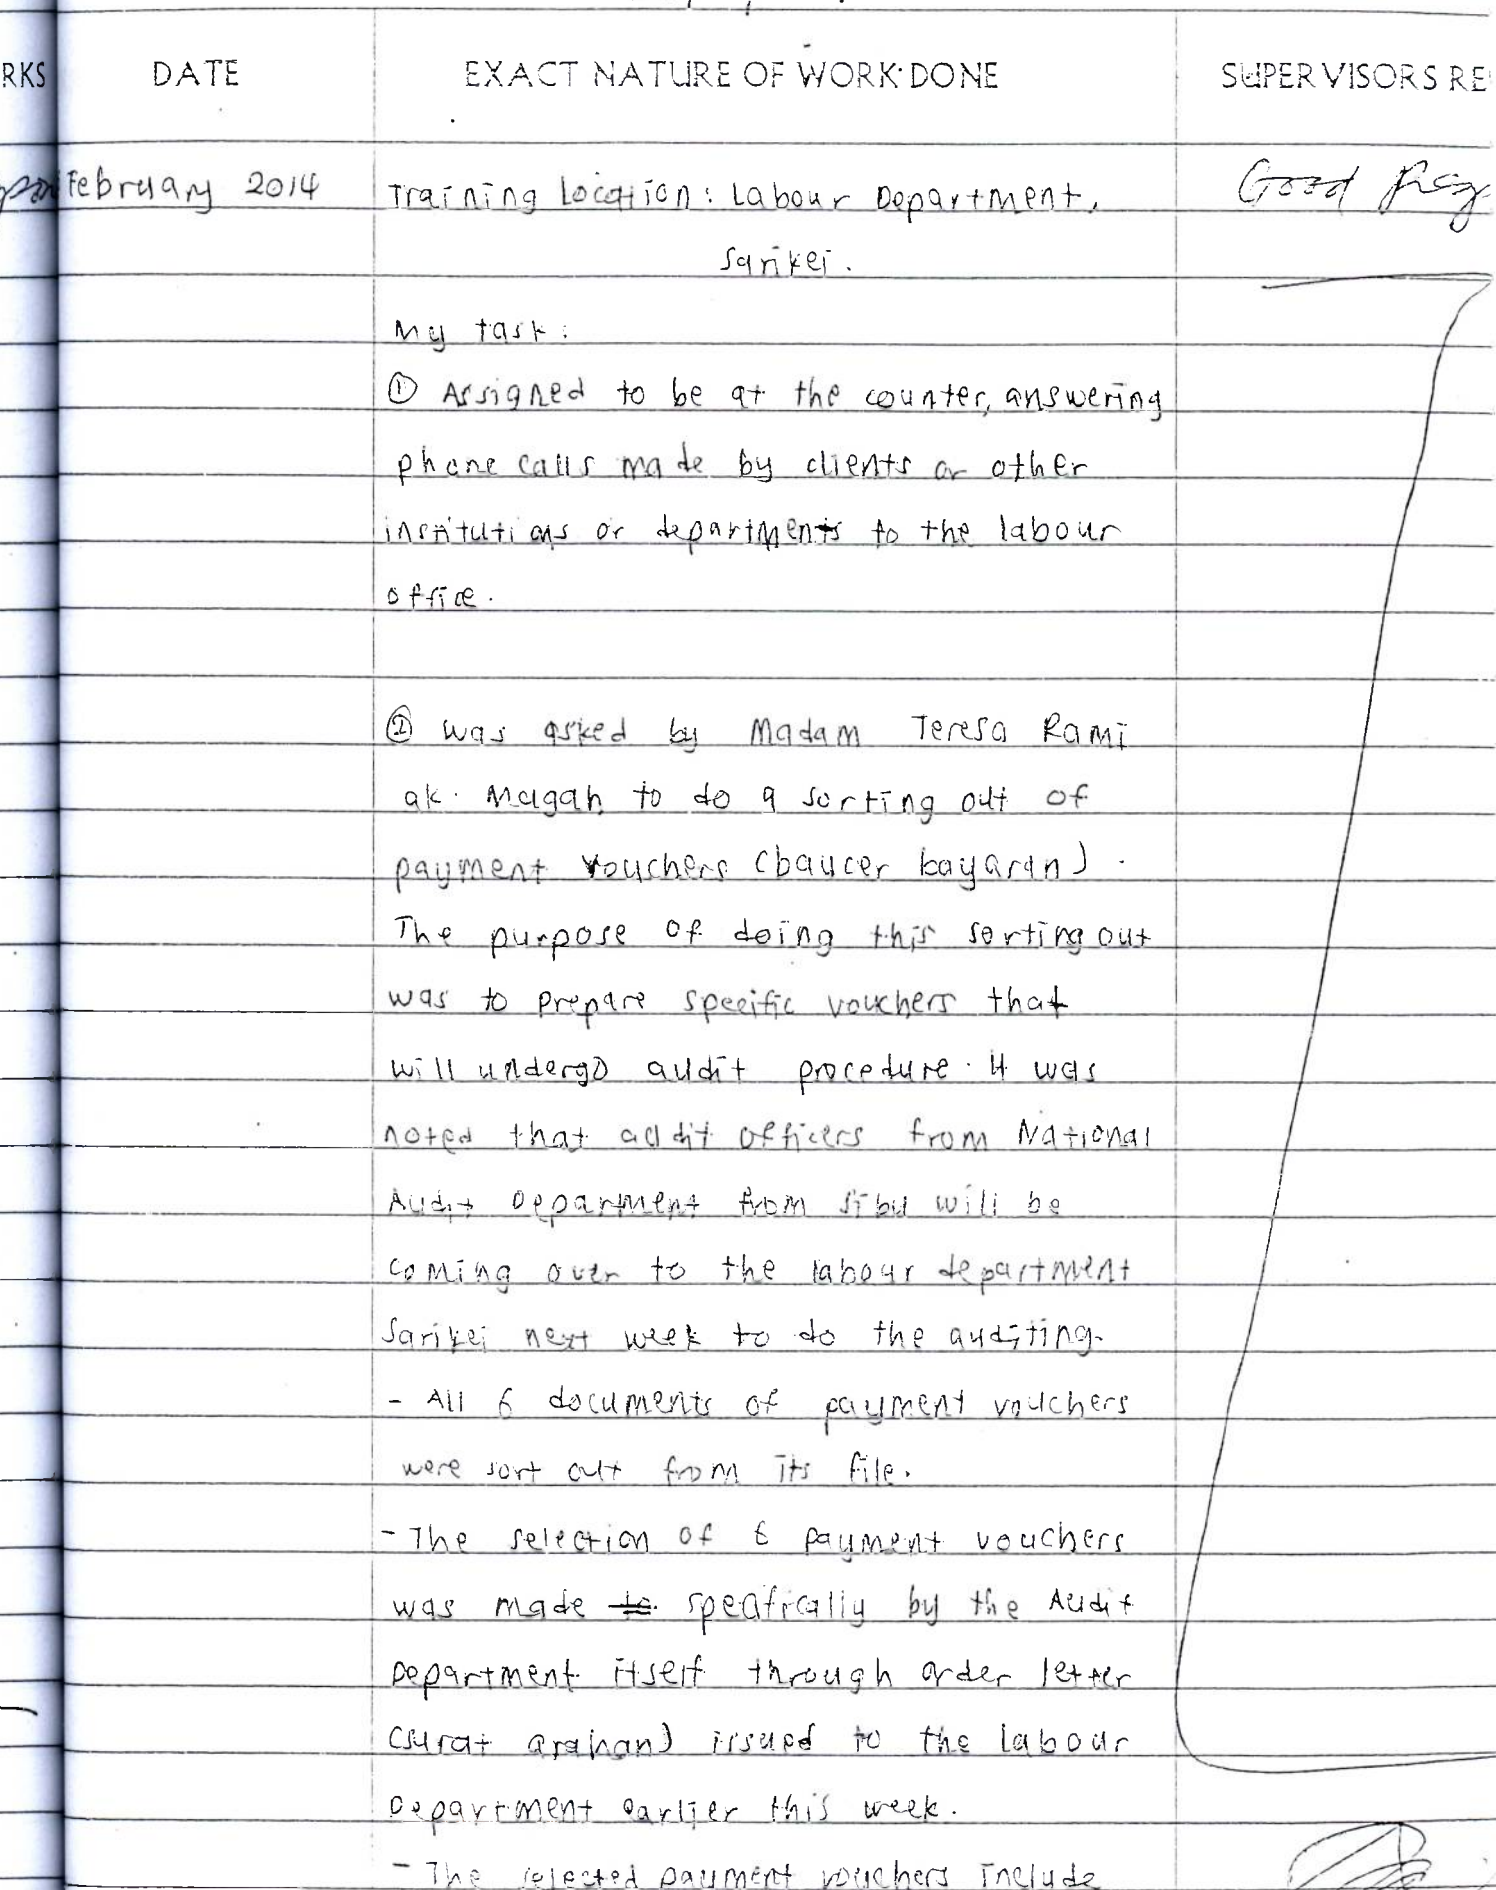 RKS DATE EXACT NATURE OF WORK DONE SUPERVISORS RE
February 2014 Training Location: Labour Department, Good
Sarikei.
My task:
① Assigned to be at the counter, answering
phone calls made by clients or other
institutions or departments to the labour
office.
② was asked by Madam Teresa Rami
ak. Magah to do a sorting out of
payment vouchers (baucer bayaran).
The purpose of doing this sorting out
was to prepare specific vouchers that
will undergo audit procedure. It was
noted that audit officers from National
Audit Department from Sibu will be
coming over to the labour department
Sarikei next week to do the auditing.
- All 6 documents of payment vouchers
were sort out from its file.
- The selection of 6 payment vouchers
was made to specifically by the Audit
Department itself through order letter
(surat arahan) issued to the Labour
Department earlier this week.
- The selected payment vouchers include